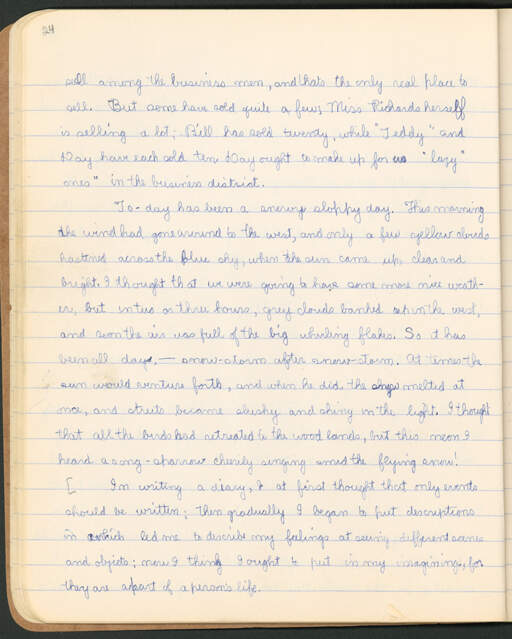 24
sell among the business men, and thats the only real place to
sell. But some have sold quite a few; Miss Richards herself
is selling a lot; Bill has sold twenty, while "Teddy" and
Day have each sold ten. Day ought to make up for us "lazy
ones" in the business district.
To-day has been a snowy sloppy day. This morning
the wind had gone around to the west, and only a few yellow clouds
hastened across the blue sky, when the sun came up, clear and
bright. I thought that we were going to have some more nice weath-
er, but in two or three hours, grey clouds banked up in the west,
and soon the air was full of the big whirling flakes. So it has
been all day, — snow-storm after snow-storm. At times the
sun would venture forth, and when he did the snow melted at
once, and streets became slushy and shiny in the light. I thought
that all the birds had retreated to the wood lands, but this noon I
heard a song-sparrow cheerily singing amid the flying snow!
[ In writing a diary, I at first thought that only events
should be written; then gradually I began to put descriptions
in which led me to describe my feelings at seeing different scenes
and objects; now I think I ought to put in my imagining, for
they are a part of a person's life.